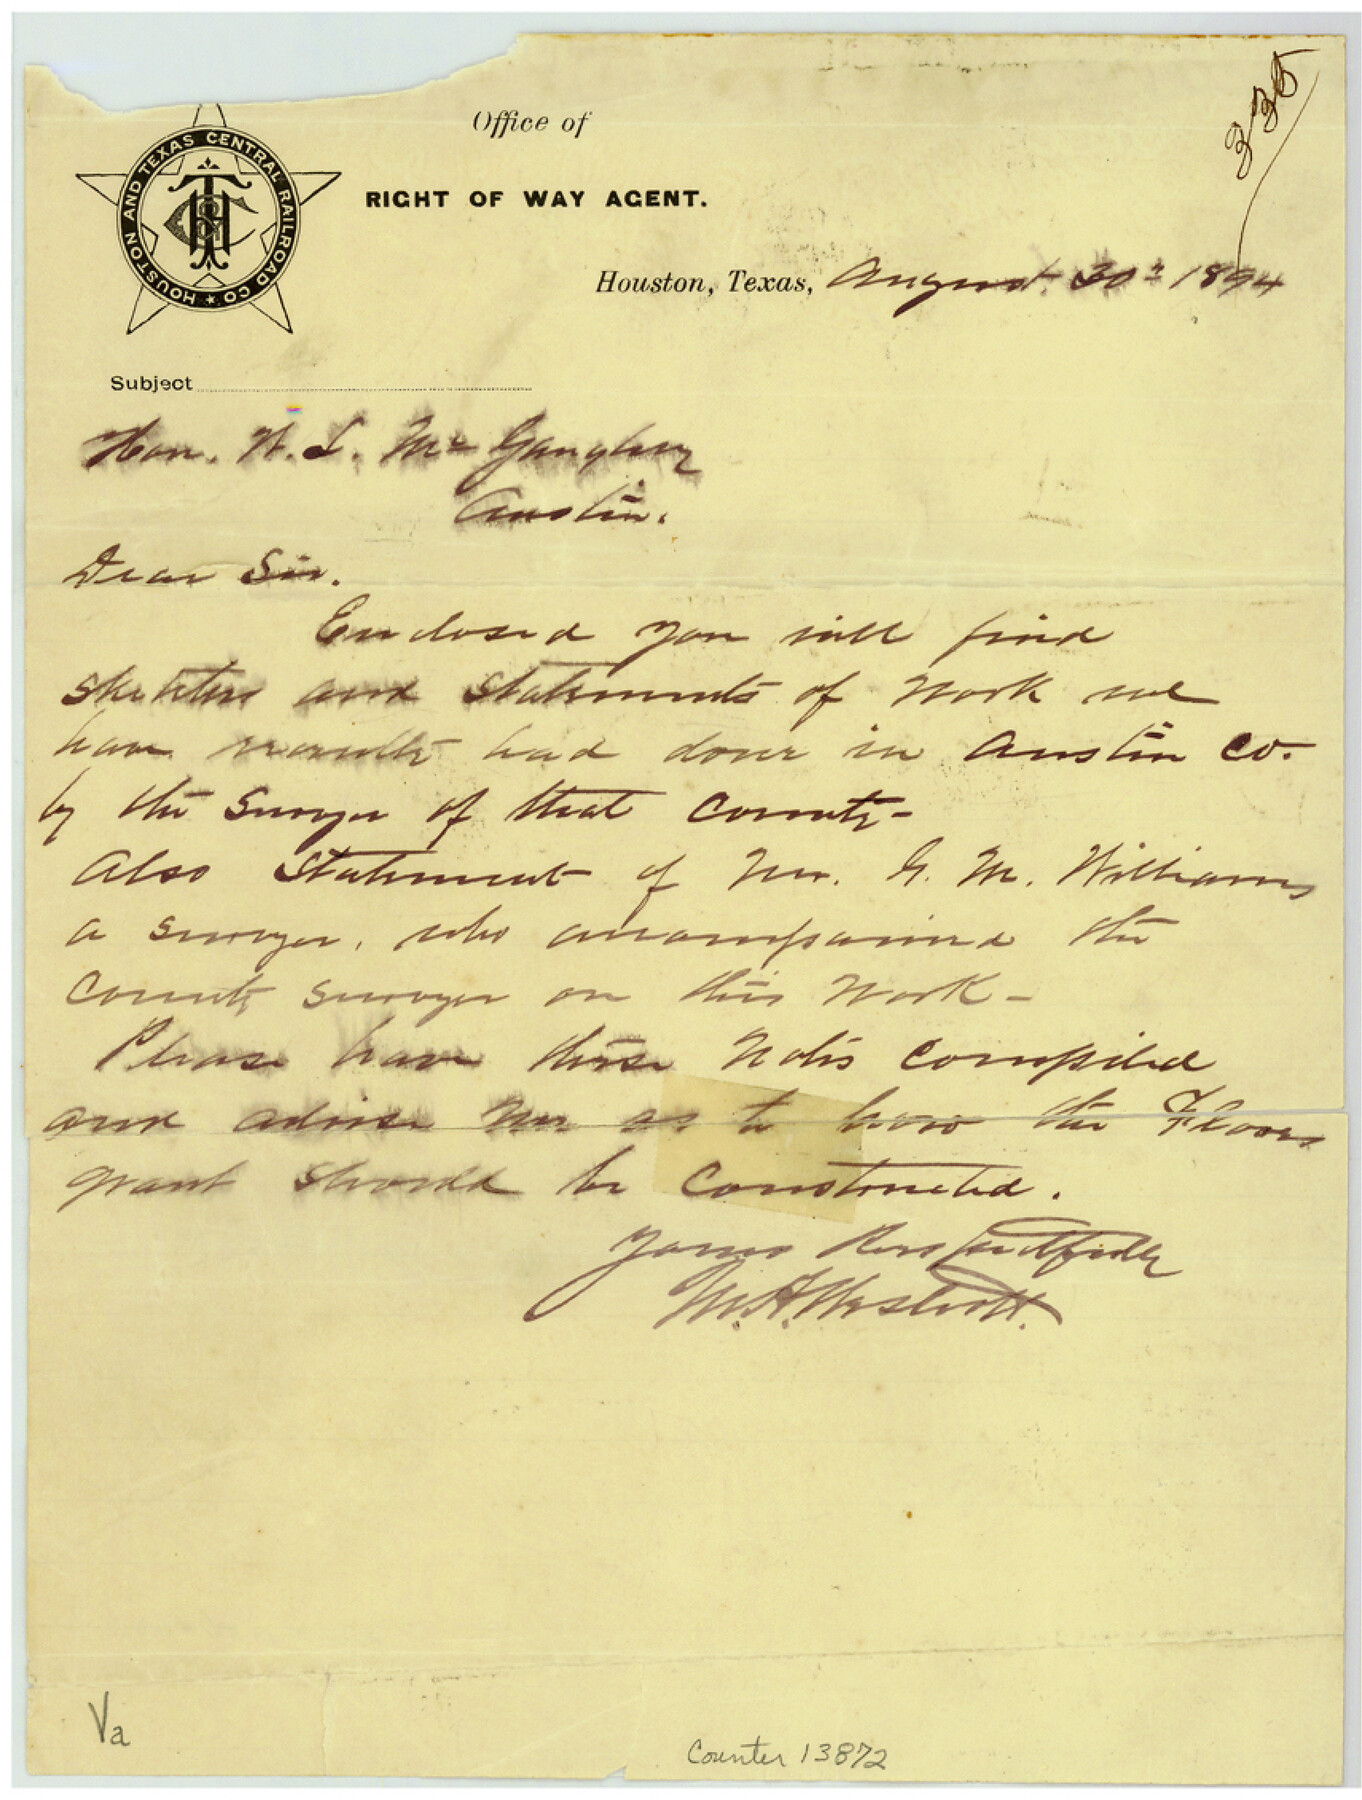 335
Office of
HOUSTON AND TEXAS CENTRAL RAILROAD CO.
RIGHT OF WAY AGENT.
Houston, Texas, August 30th 1894
Subject
Hon. W. L. McGaughey
Austin.
Dear Sir.
Enclosed you will find
sketches and statements of Work we
have recently had done in Austin Co.
by the Surveyor of that County-
Also Statement of Mr. G. M. Williams
a surveyor, who accompanied the
County Surveyor on this Work-
Please have these Notes compiled
and advise me as to how the Flores
grant should be Constructed.
Yours Respectfully
Va
Counter 13872